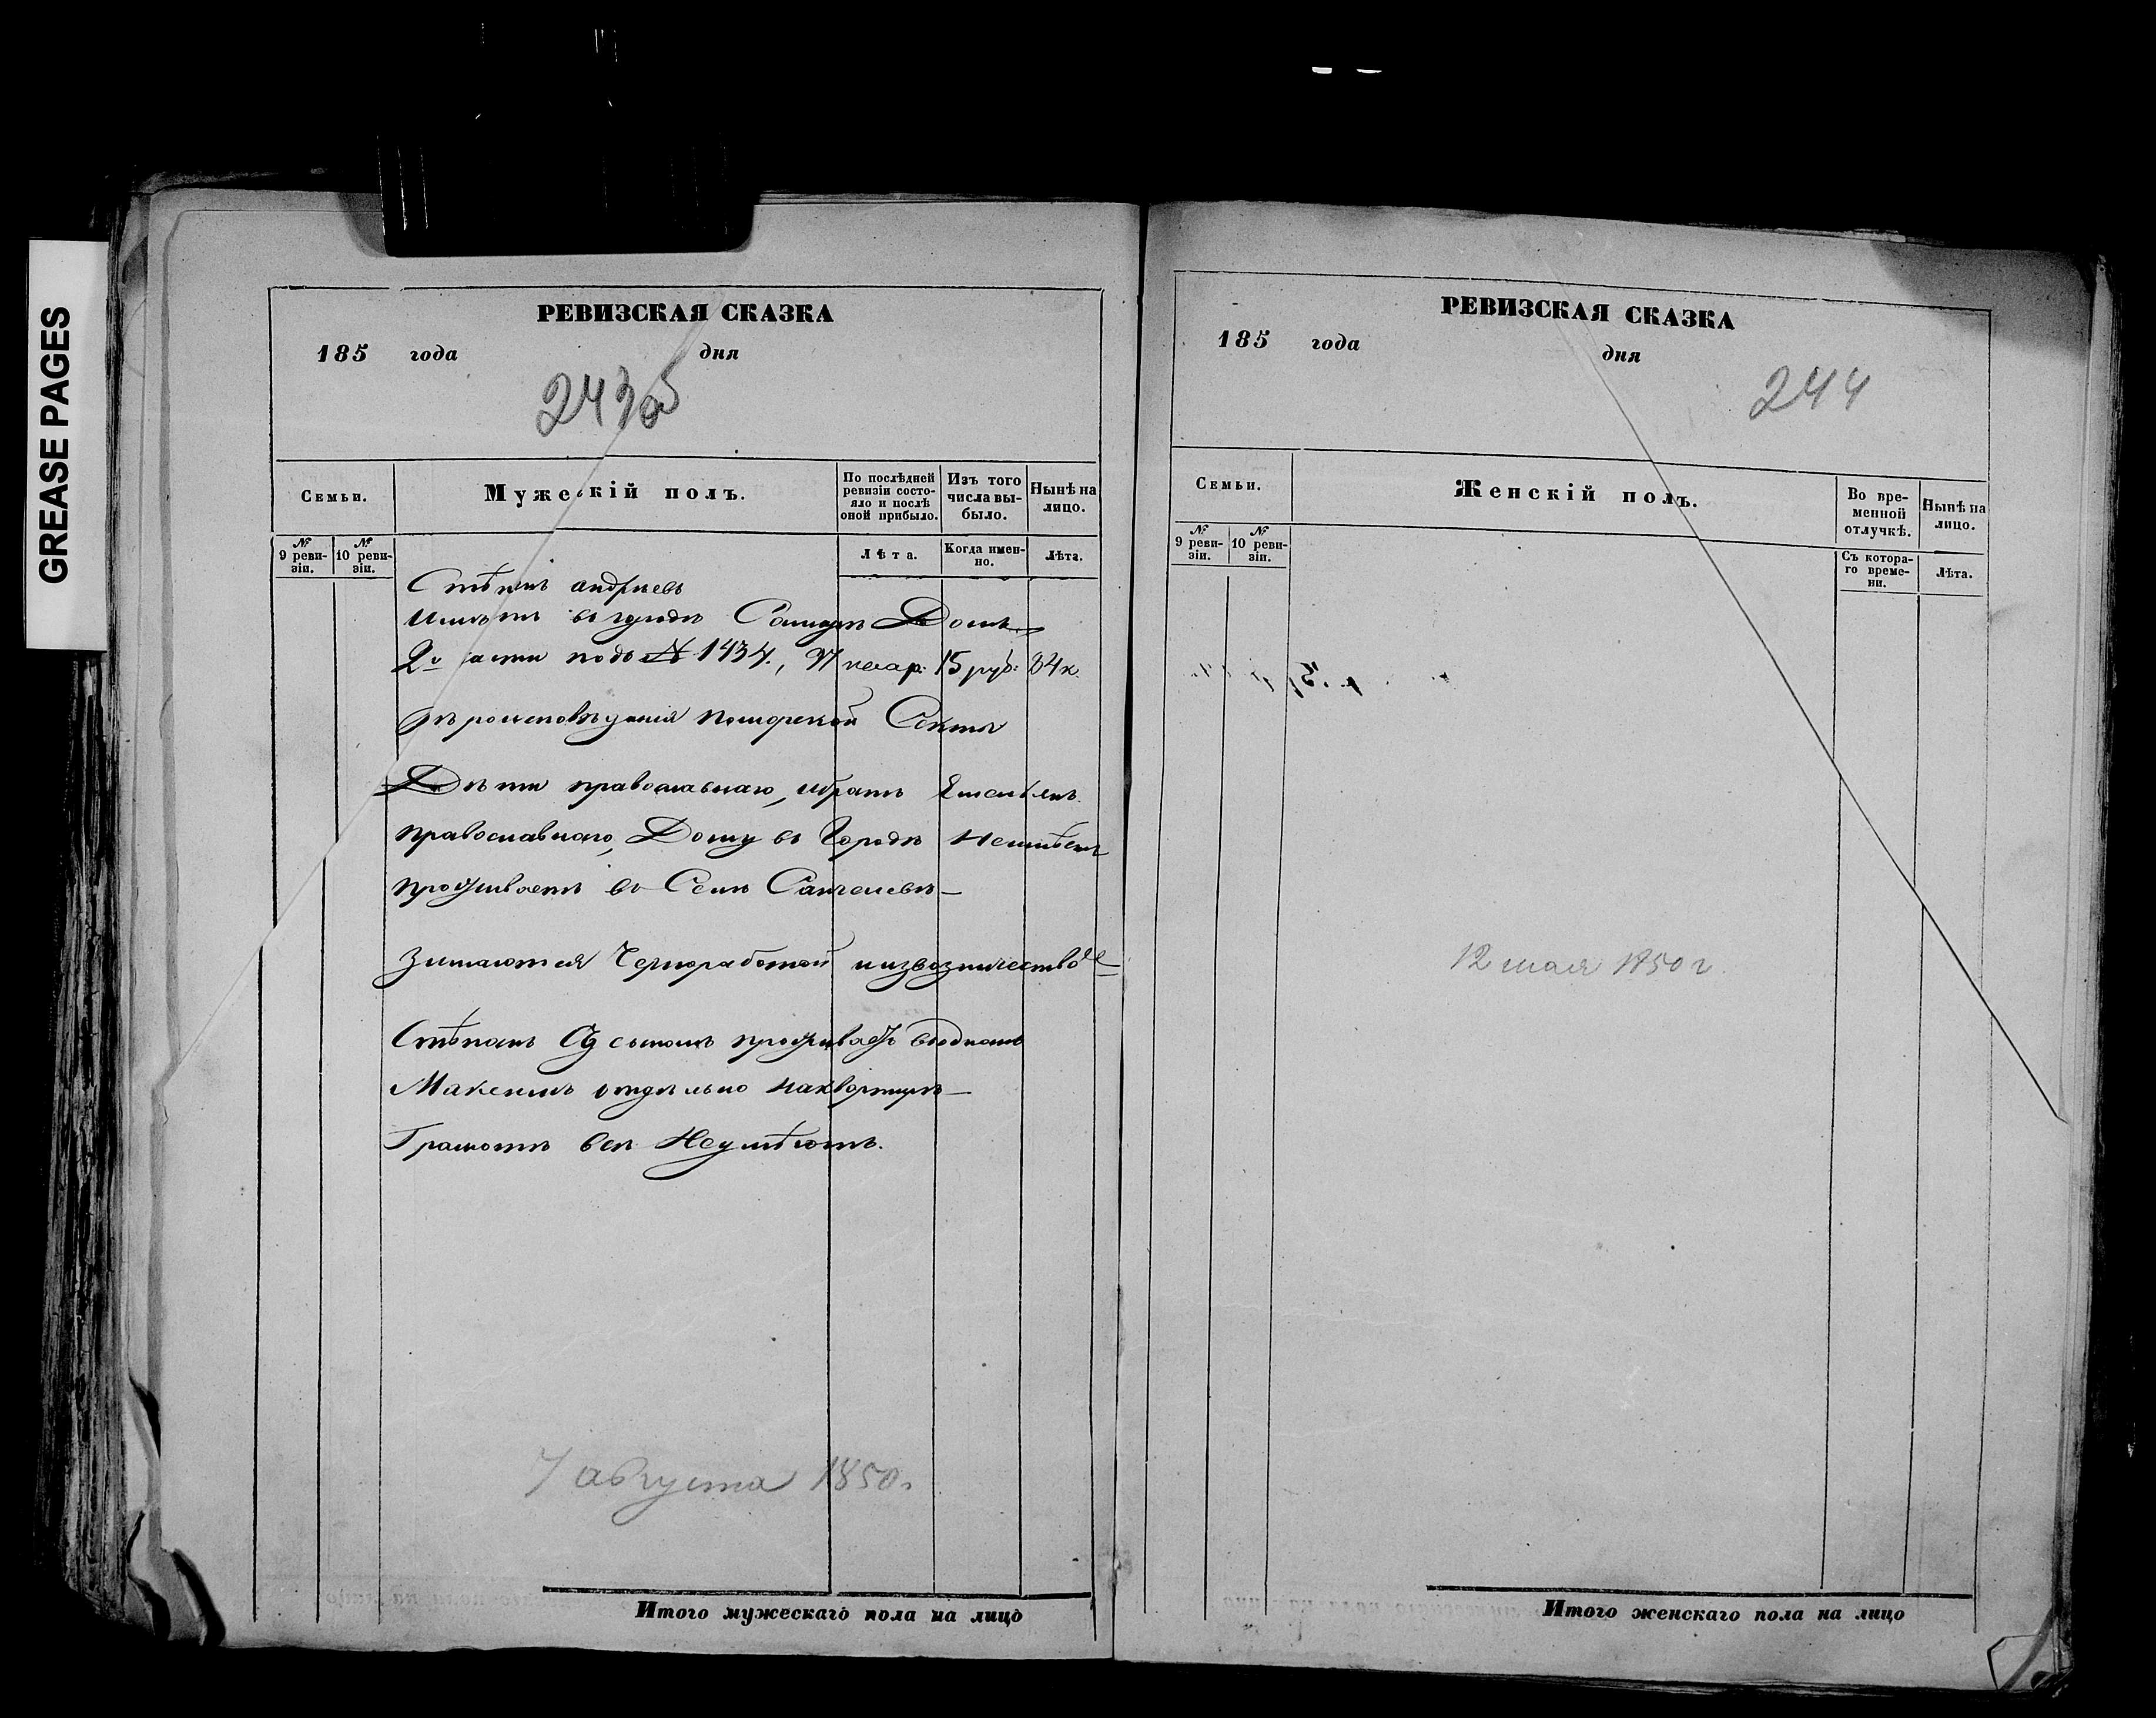 GREASE PAGES
РЕВИЗСКАЯ СКАЗКА
185 года дня
Семьи.
Мужескій полъ.
По послѣдней ревизіи состояло и послѣ оной прибыло.
Изъ того числа выбыло.
Нынѣ на лицо.
№ 9 ревизіи.
№ 10 ревизіи.
Лѣта.
Когда именно.
Лѣта.
Стѣпанъ андриевъ
имѣетъ въ городѣ Самарѣ Домъ
2й части подъ № 1434.,
15 руб: 84 к.
поморской Секты
Дѣти православнаго, ибратъ Емельянъ
православнаго, Дому въ Городѣ Неимѣетъ
проживаетъ въ Селѣ
Зимаются Черноработой иизвозничествое
Стѣпанъ Съ сыномъ въодномъ
Максимъ отдѣльно наквортирѣ
Грамотѣ всѣ Неумѣютъ.
7 августа 1850 г.
Итого мужескаго пола на лицо
РЕВИЗСКАЯ СКАЗКА
185 года дня
244
Семьи.
Женскій полъ.
Во временной отлучкѣ.
Нынѣ на лицо.
№ 9 ревизіи.
№ 10 ревизіи.
Съ котораго времени.
Лѣта.
12 мая 1850 г.
Итого женскаго пола на лицо